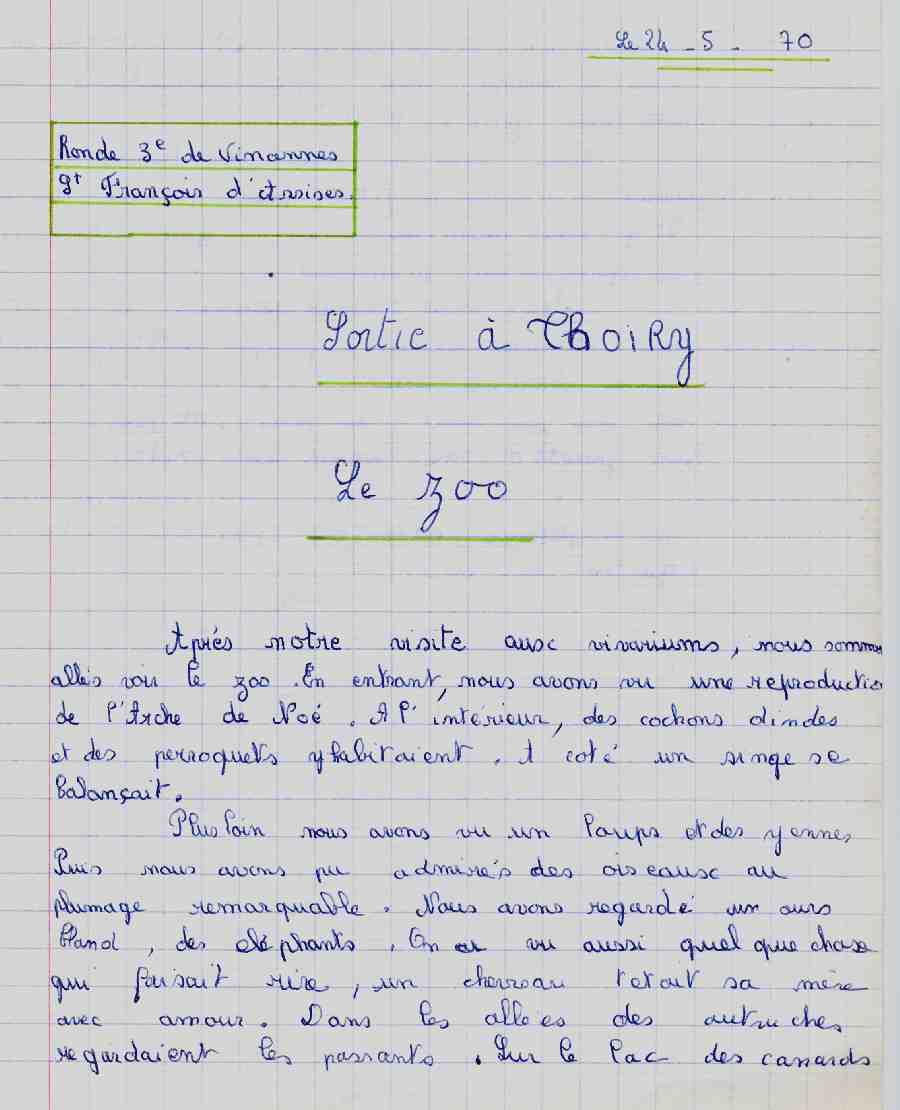 Le 24 - 5 - 70
Ronde 3e de Vincennes
St François d'Assises.
Sortie à Thoiry
Le zoo
Aprés notre visite aux vivariums, nous somm
allés voir le zoo. En entrant, nous avons vu une reproductio
de l'Arche de Noé. A l'intérieur, des cochons dindes
et des perroquets y habitaient. A coté un singe se
balançait.
Plus loin nous avons vu un loups et des yennes,
Puis nous avons pu admirés des oiseaux au
plumage remarquable. Nous avons regardé un ours
bland, des eléphants. On a vu aussi quel que chose
qui faisait rire, un chevreau tetait sa mère
avec amour. Dans les allées des autruches
regardaient les passants. Sur le lac des canards